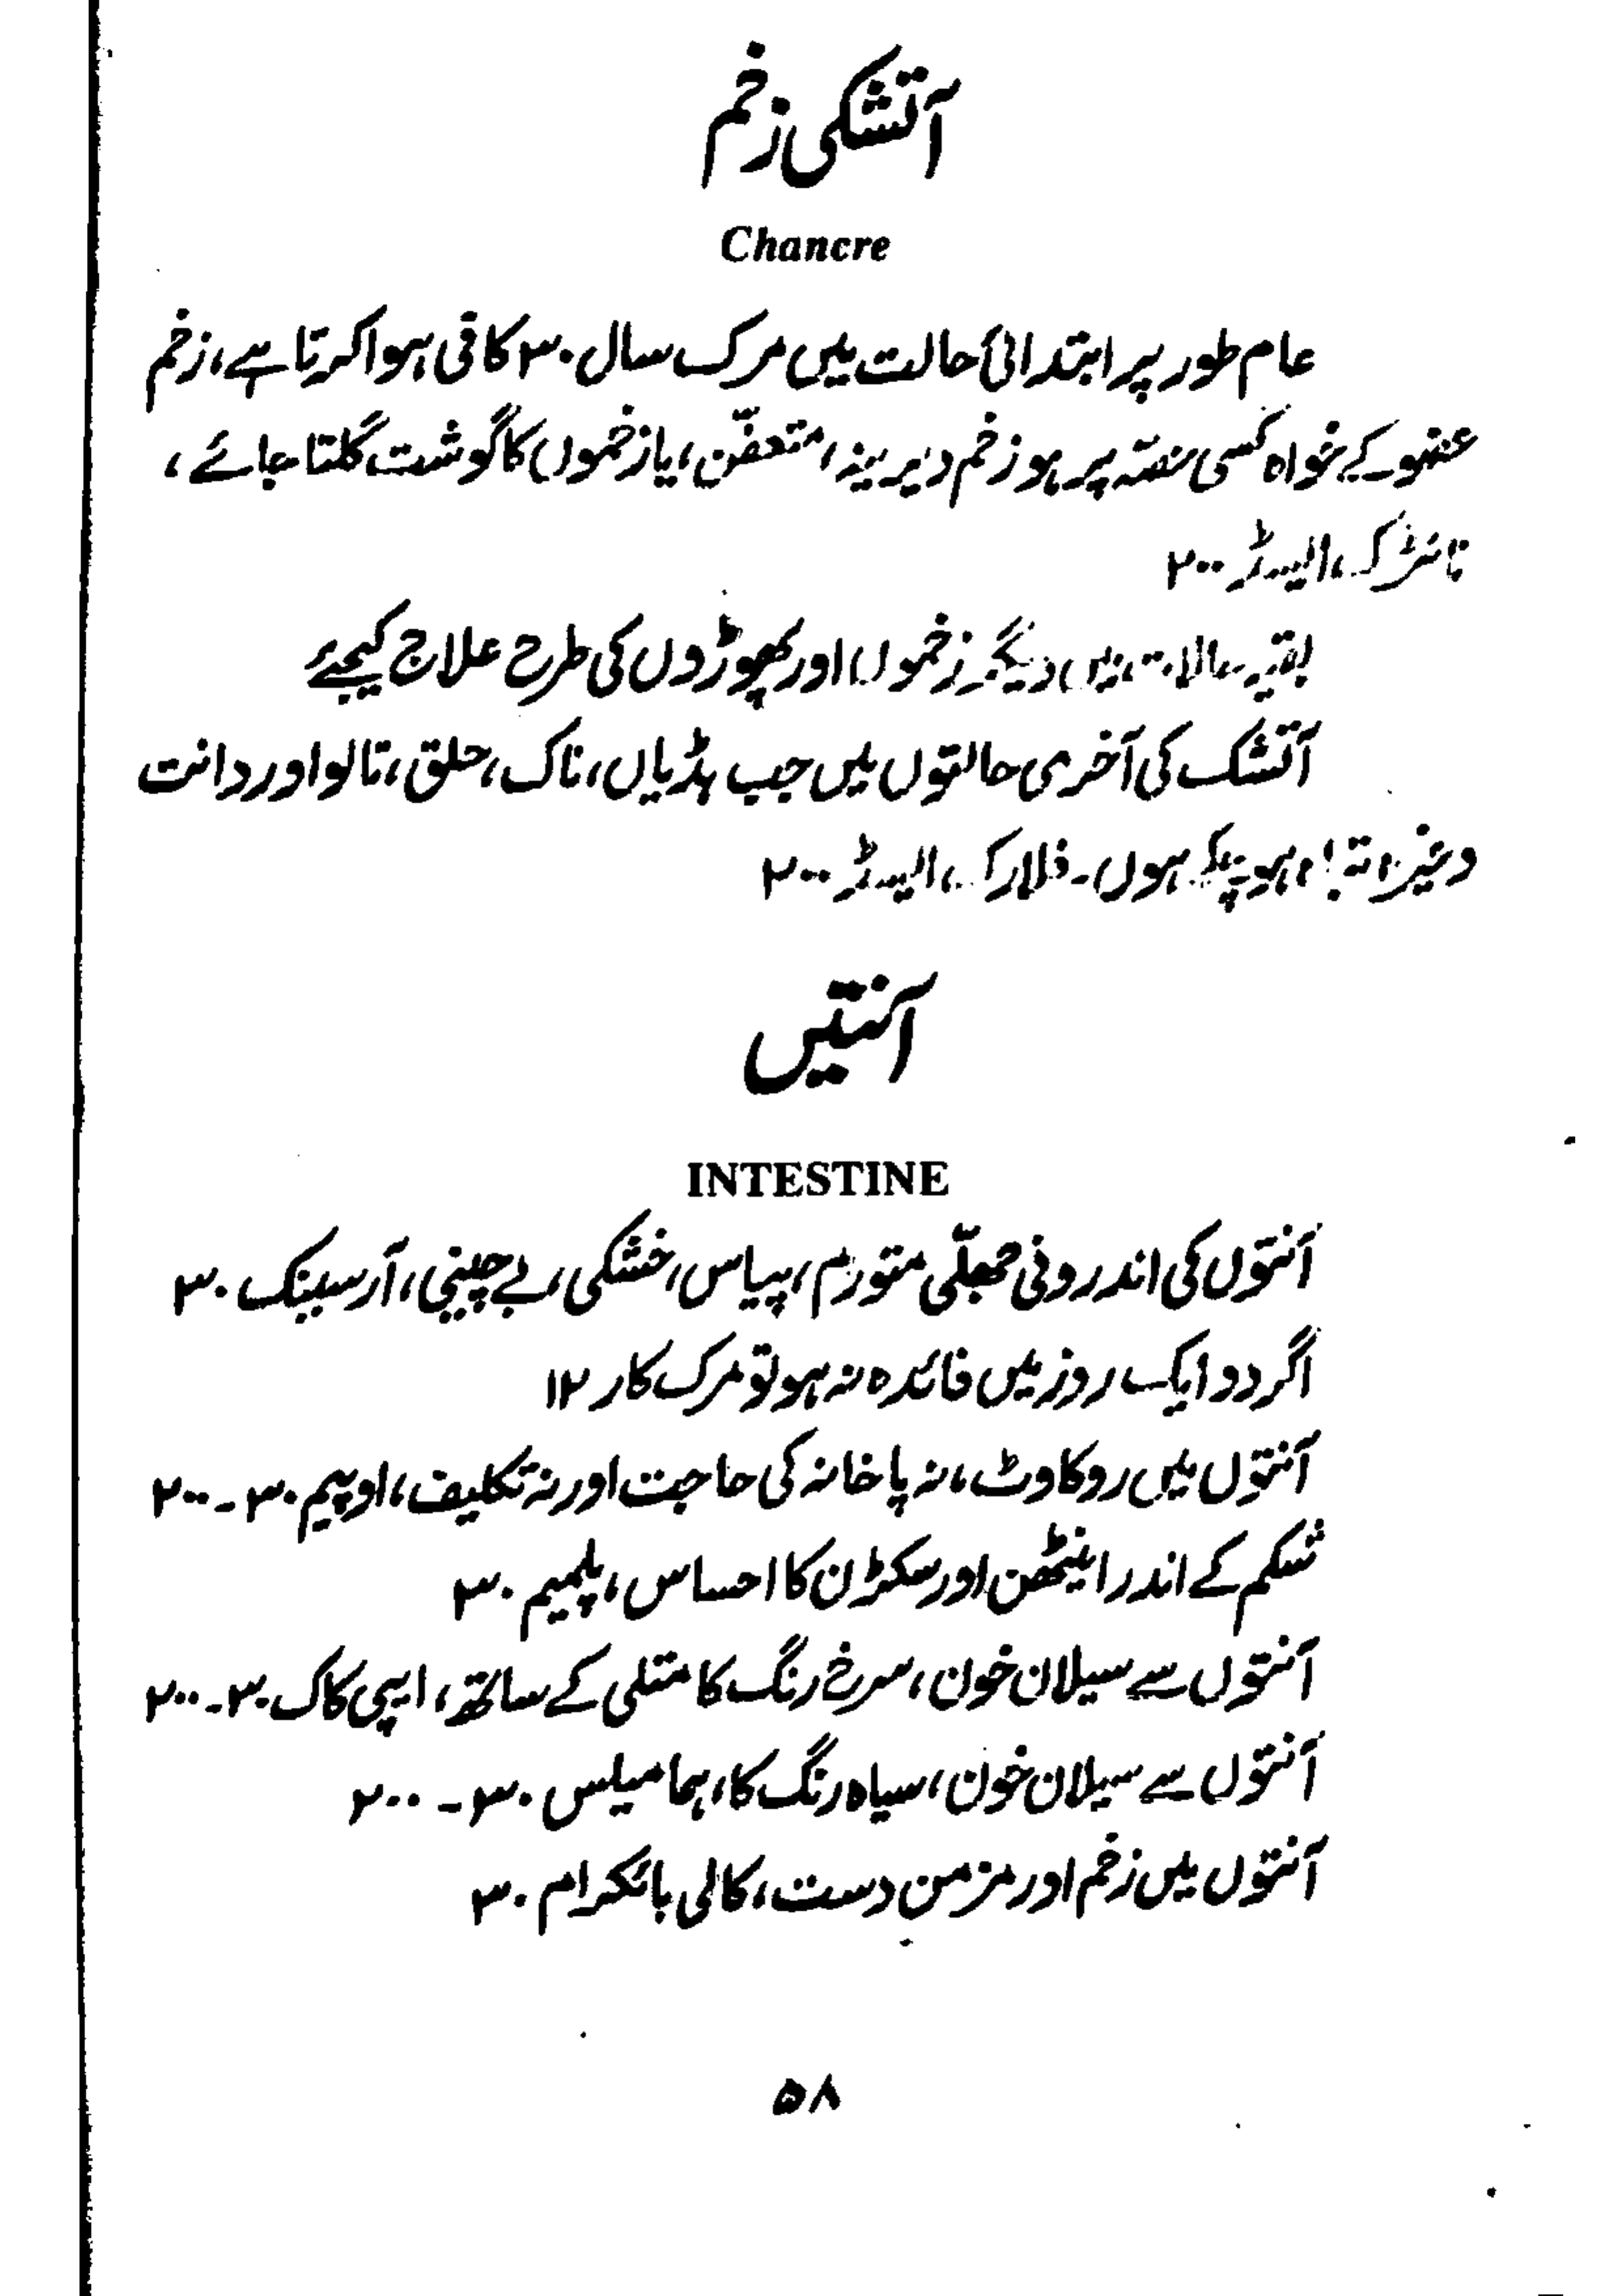 آتشکی زخم
Chancre
عام طور پر ابتدائی حالت میں مرک سال ۳۰ کافی ہوا کرتا ہے، زخم
عضو کے خواہ کسی حصّہ پر ہو زخم دیرینہ، متعفّن، یا زخموں کا گوشت گلتا جائے،
نائٹرک ایسڈ ۲۰۰
بقیہ حالات میں دیگر زخموں اور پھوڑوں کی طرح علاج کیجئے
آتشک کی آخری حالتوں میں جب ہڈیاں، ناک، حلق، تالو اور دانت
وغیرہ تباہ ہو چکے ہوں۔ فلارک ایسڈ ۲۰۰
آنتیں
INTESTINE
آنتوں کی اندرونی جھلّی متورم، پیاس، خشکی، بے چینی، آرسینک ۳۰
اگر دو ایک روز میں فائدہ نہ ہو تو مرک کار ۱۲
آنتوں میں روکاوٹ، نہ پاخانہ کی حاجت اور نہ تکلیف، اوپیم ۳۰۔۲۰۰
شکم کے اندر اینٹھن اور سکڑان کا احساس، پلمبیم ۳۰
آنتوں سے سیلان خون، سرخ رنگ کا متلی کے ساتھ، ایپی کاک ۳۰۔۲۰۰
آنتوں سے سیلان خون، سیاہ رنگ کا، ہمامیلس ۳۰۔۲۰۰
آنتوں میں زخم اور مزمن دست، کالی بائکرام ۳۰
۵۸